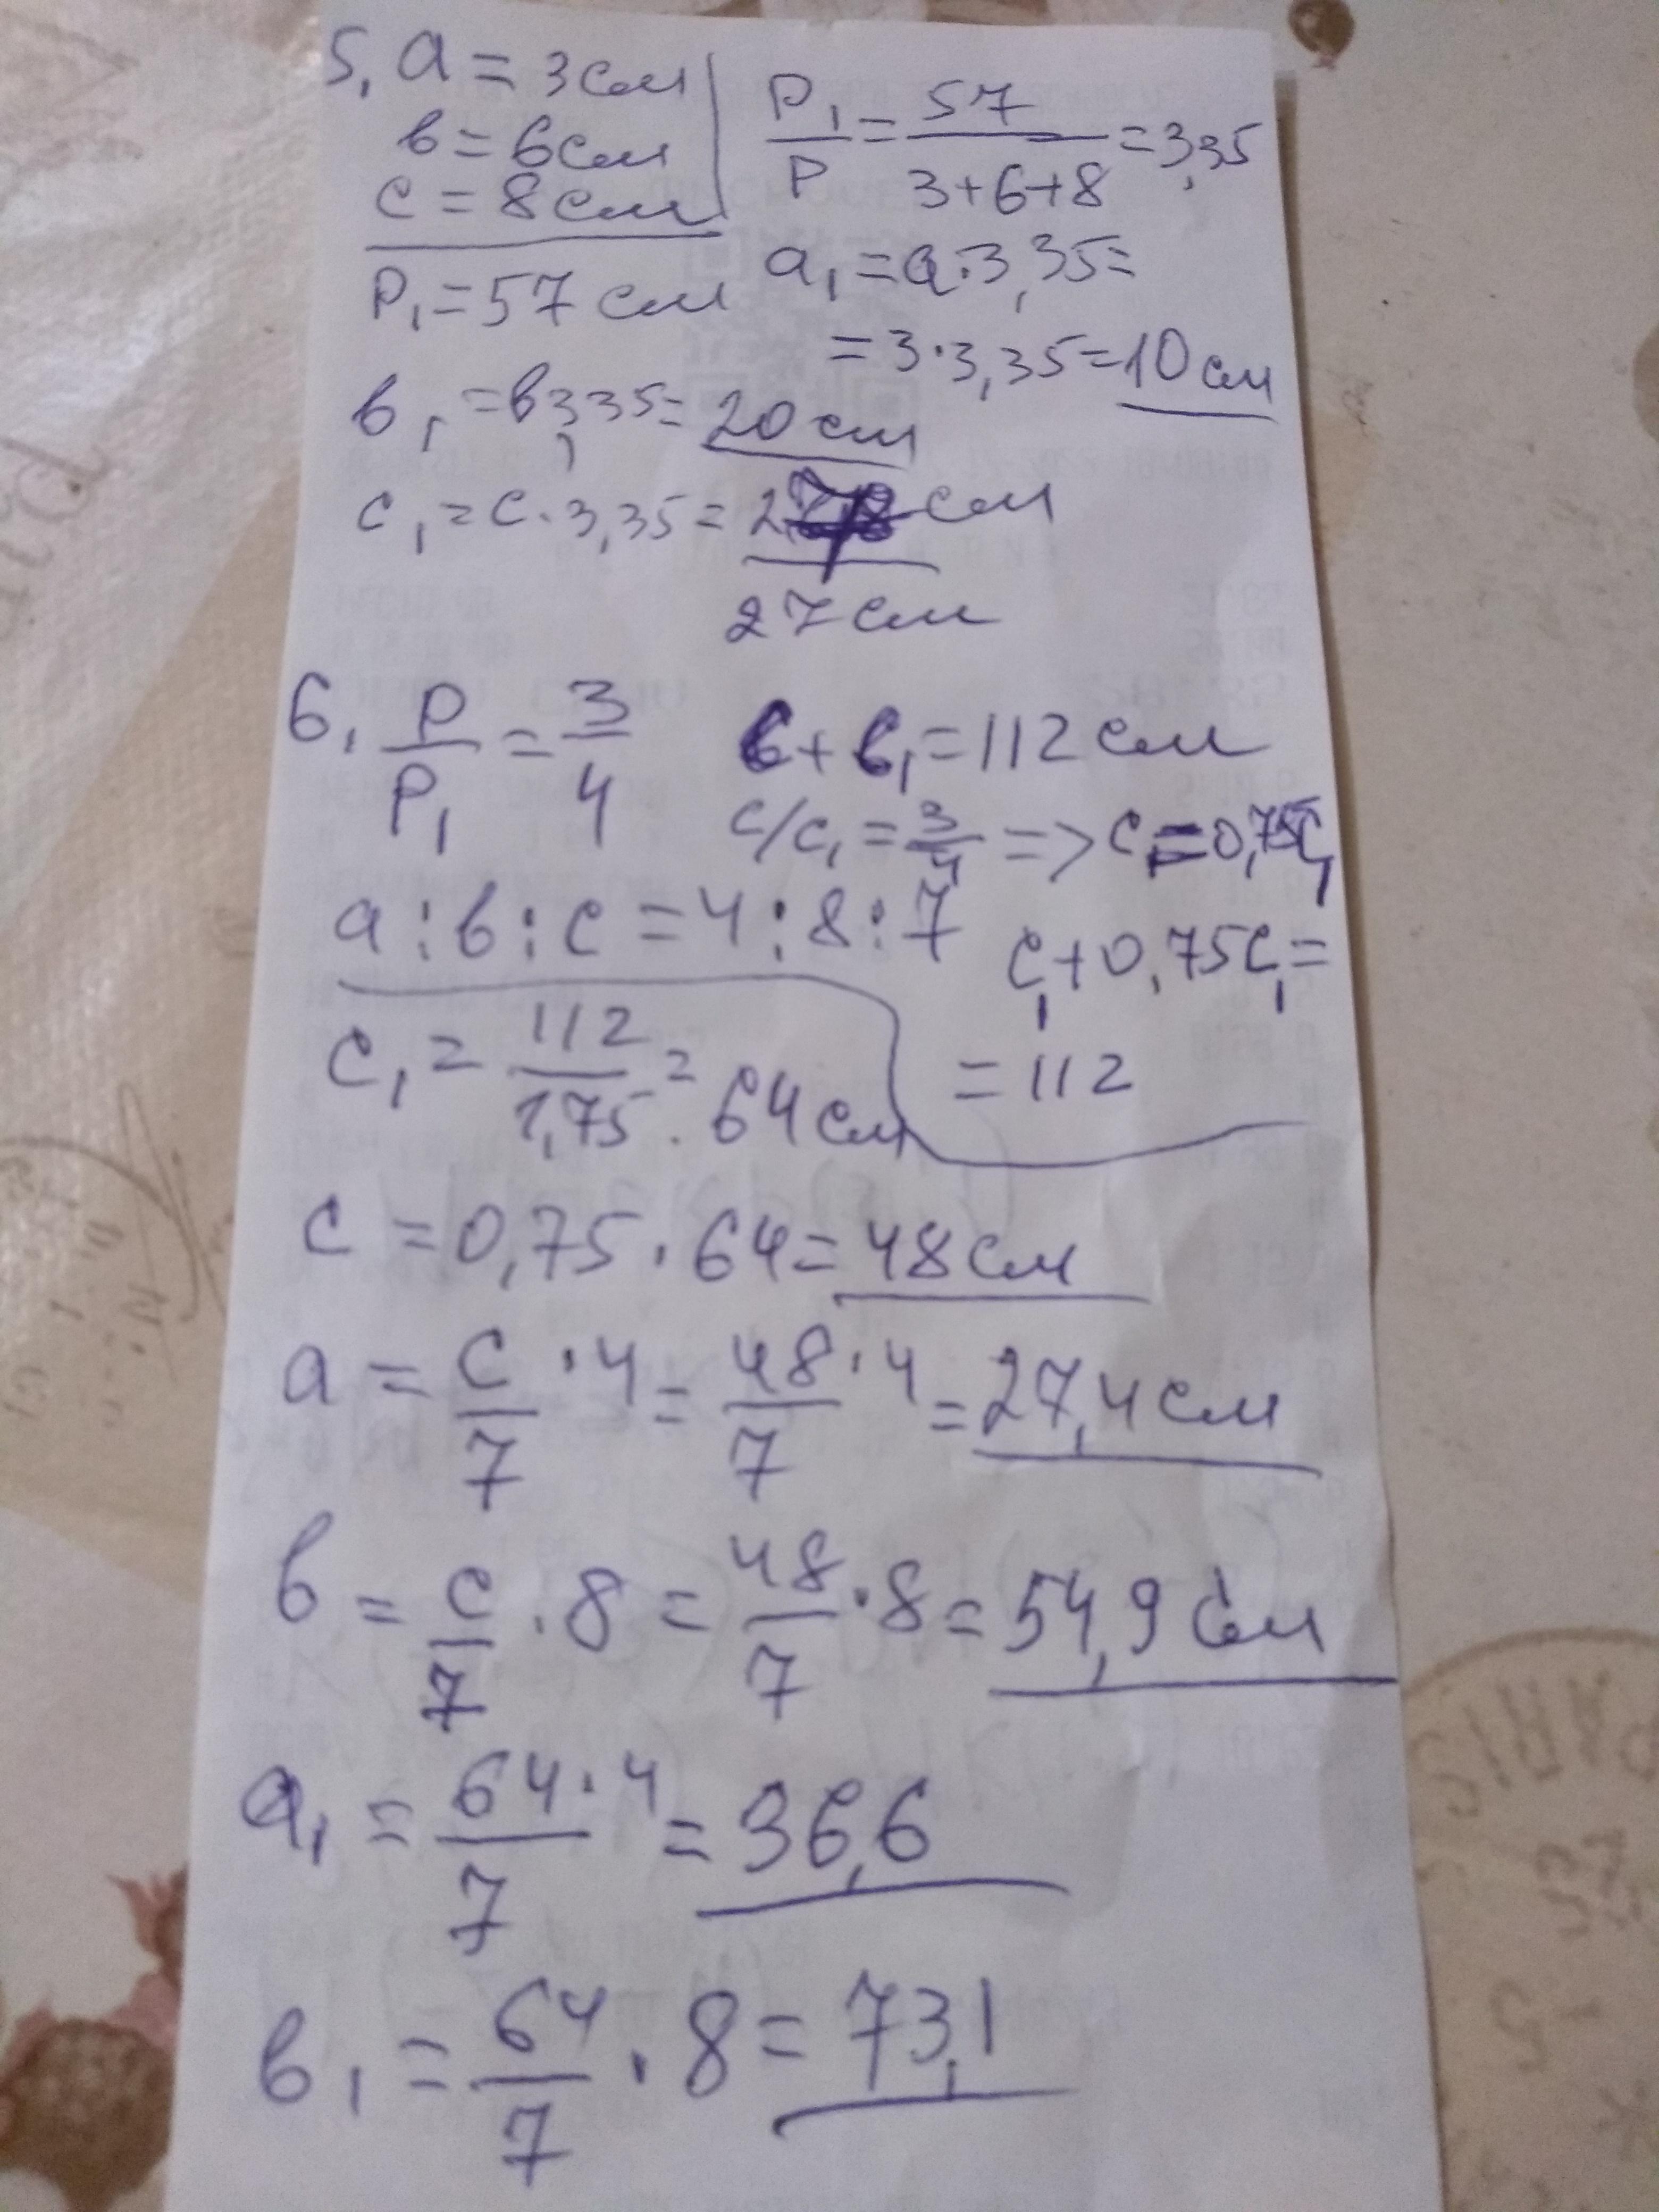 5, a = 3 см
в = 6 см
c = 8 см
P₁ = 57 см
P₁/P = 57/(3+6+8) = 3,35
a₁ = a·3,35 =
= 3·3,35 = 10 см
в₁ = в 3,35 = 20 см
c₁ = c·3,35 = 2 см
27 см
6, P/P₁ = 3/4
в + в₁ = 112 см
c/c₁ = 3/4 => c = 0,75c₁
a : в : c = 4 : 8 : 7
c₁ + 0,75c₁ =
= 112
c₁ = 112/1,75 = 64 см
c = 0,75 · 64 = 48 см
a = c/7 · 4 = 48/7 · 4 = 27,4 см
в = c/7 · 8 = 48/7 · 8 = 54,9 см
a₁ = 64·4/7 = 36,6
в₁ = 64/7 · 8 = 73,1
PARIS